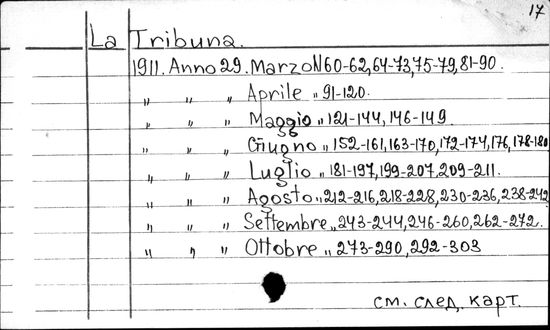 17
La Tribuna.
1911. Anno 29. Marzo N60-62,64-73,75-79,81-90.
„ „ „ Aprile „ 91-120.
„ „ „ Maggio „ 121-144, 146-149.
„ „ „ Giugno „ 152-161,163-170,172-174,176,178-180
„ „ „ Luglio „ 181-197,199-207,209-211.
„ „ „ Agosto „ 212-216,218-228,230-236,238-242
„ „ „ Settembre „ 243-244,246-260,262-272.
„ „ „ Ottobre „ 273-290,292-303
см. след. карт.